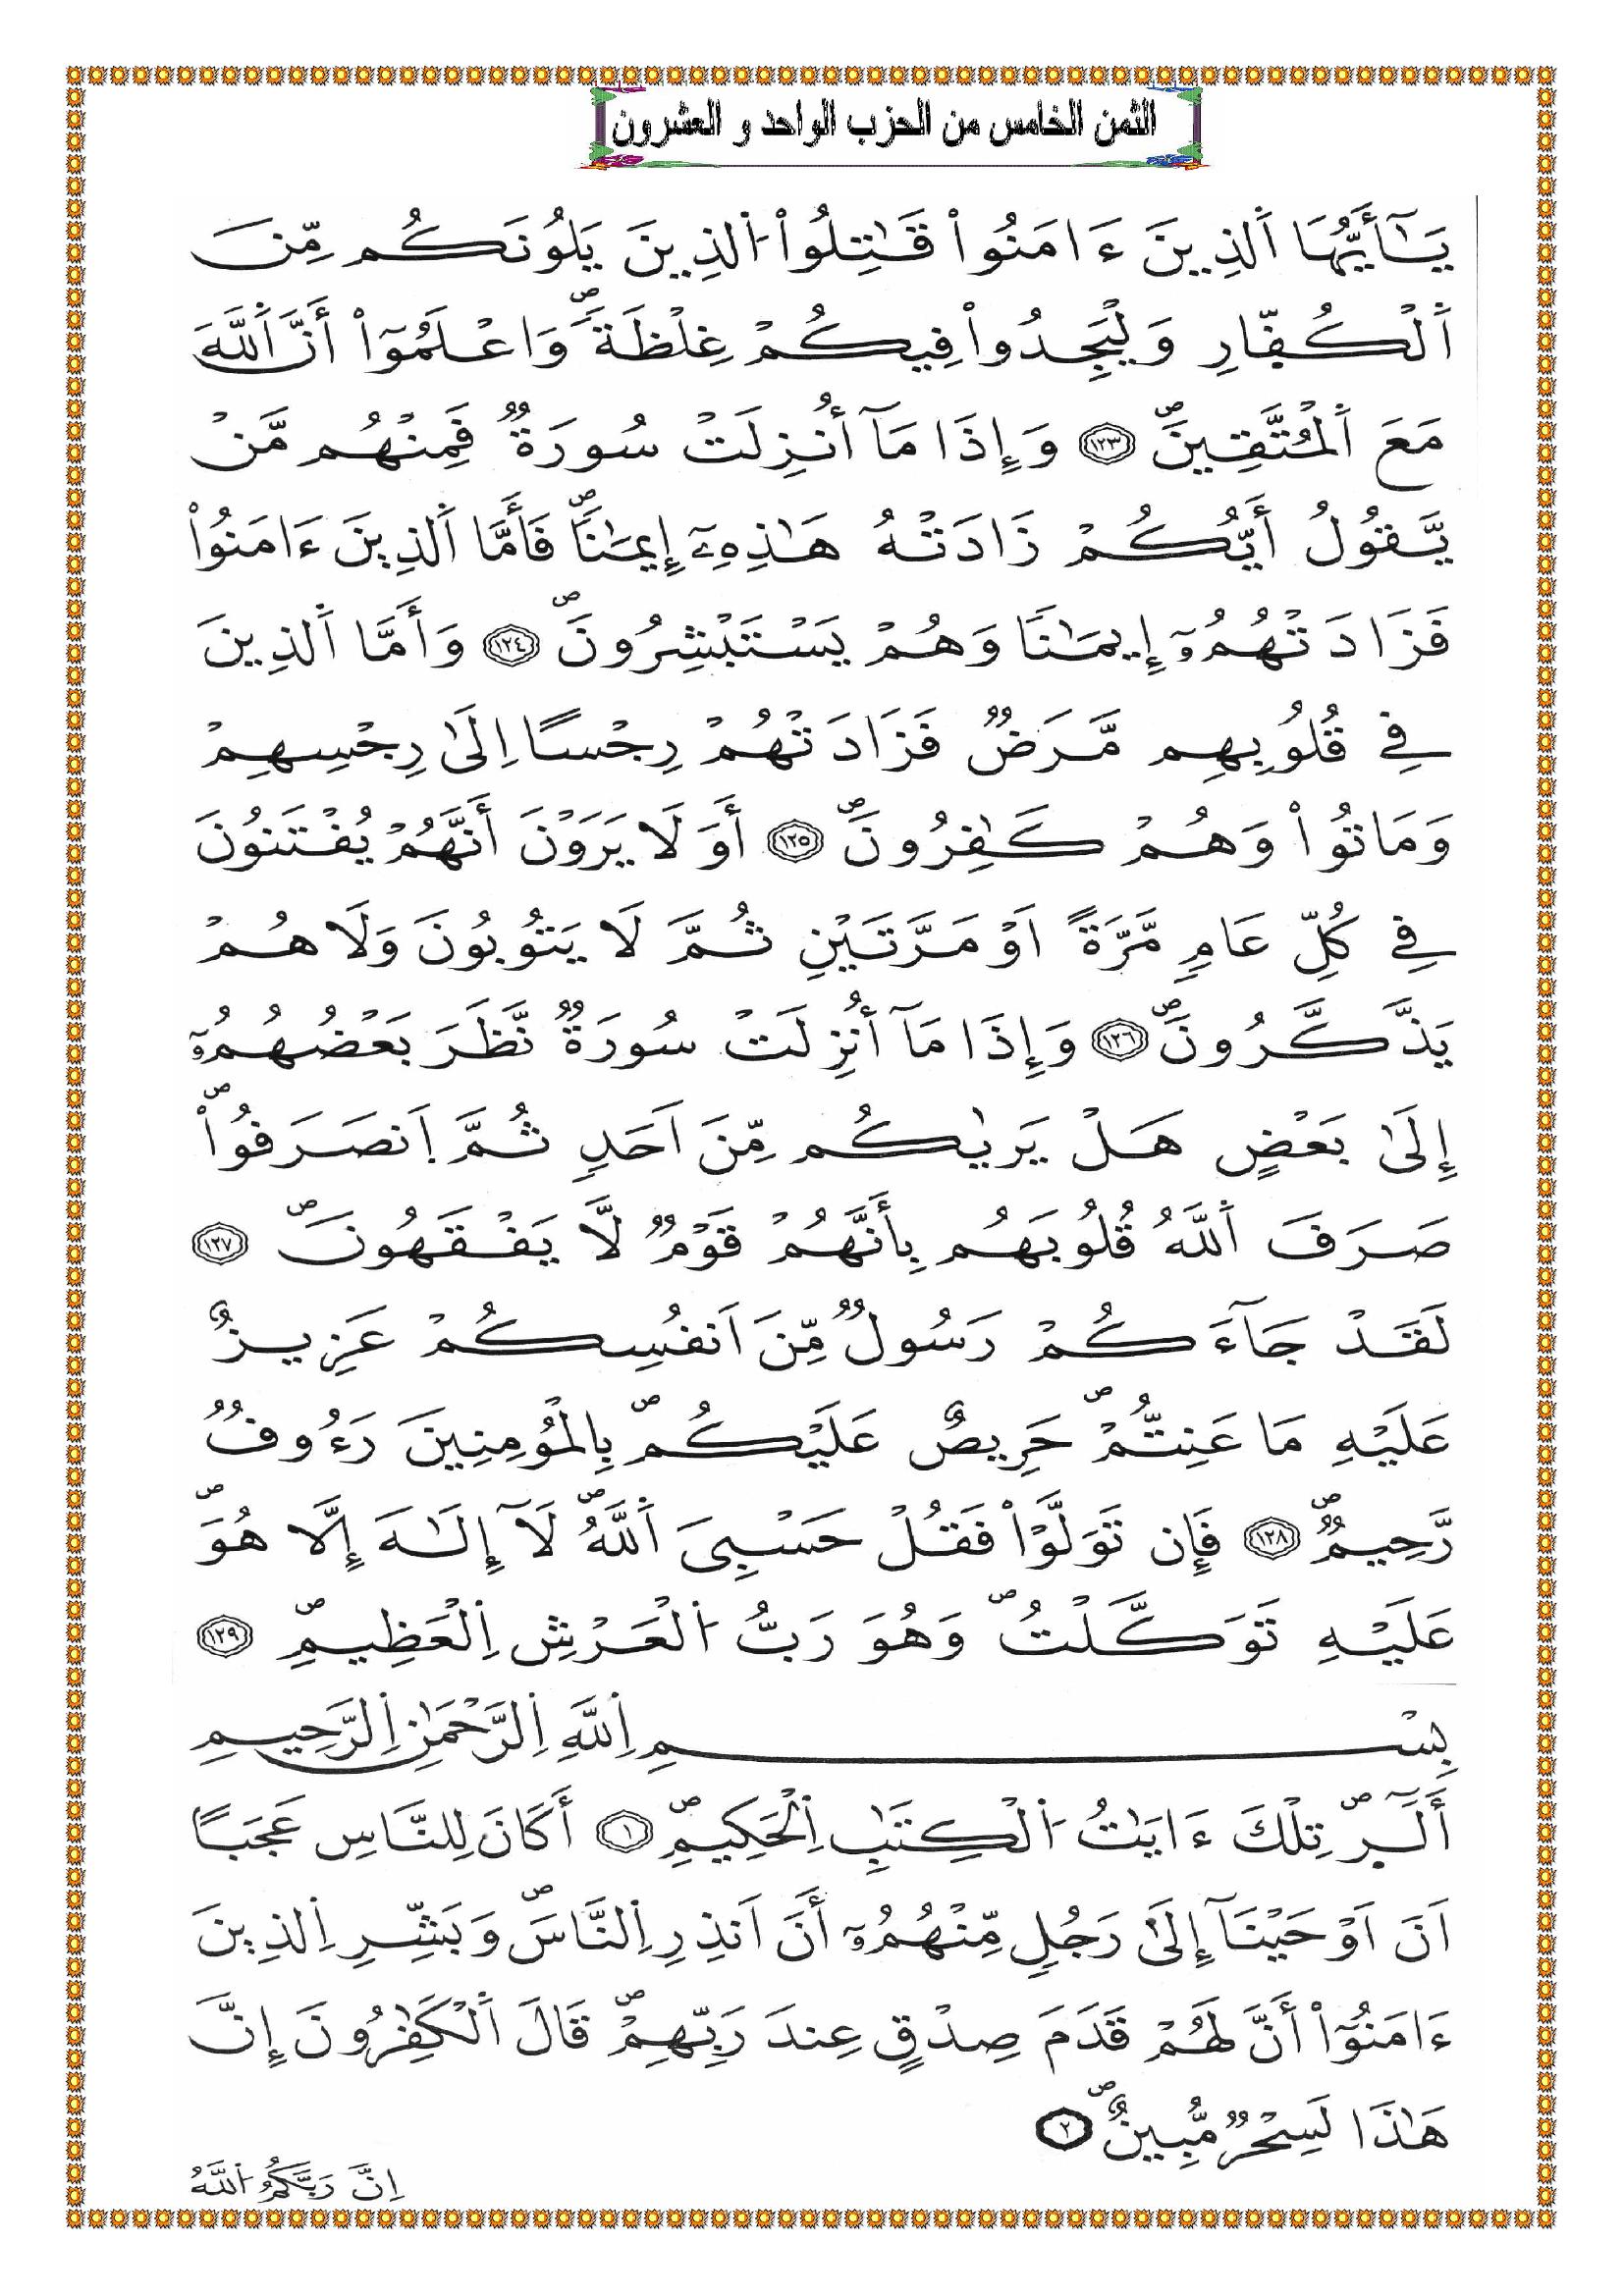 الثمن الخامس من الحزب الواحد و العشرون
يَٰٓأَيُّهَا اَ۬لذِينَ ءَامَنُواْ قَٰتِلُواْ اُ۬لذِينَ يَلُونَكُم مِّنَ
اَ۬لْكُفّ۪ارِ وَلْيَجِدُواْ فِيكُمْ غِلْظَةٗۖ وَاعْلَمُوٓاْ أَنَّ اَ۬للَّهَ
مَعَ اَ۬لْمُتَّقِينَۖ ١٢٣ وَإِذَا مَآ أُنزِلَتْ سُورَةٞ فَمِنْهُم مَّنْ
يَّقُولُ أَيُّكُمْ زَادَتْهُ هَٰذِهِۦٓ إِيمَٰناٗۖ فَأَمَّا اَ۬لذِينَ ءَامَنُواْ
فَزَادَتْهُمُۥٓ إِيمَٰناٗ وَهُمْ يَسْتَبْشِرُونَۖ ١٢٤ وَأَمَّا اَ۬لذِينَ
فِے قُلُوبِهِم مَّرَضٞ فَزَادَتْهُمْ رِجْساً اِلَىٰ رِجْسِهِمْ
وَمَاتُواْ وَهُمْ كَٰفِرُونَۖ ١٢٥ أَوَلَا يَرَوْنَ أَنَّهُمْ يُفْتَنُونَ
فِے كُلِّ عَامٖ مَّرَّةً اَوْ مَرَّتَيْنِ ثُمَّ لَا يَتُوبُونَ وَلَا هُمْ
يَذَّكَّرُونَۖ ١٢٦ وَإِذَا مَآ أُنزِلَتْ سُورَةٞ نَّظَرَ بَعْضُهُمُۥٓ
إِلَىٰ بَعْضٍ هَلْ يَر۪يٰكُم مِّنَ اَحَدٖ ثُمَّ اَ۪نصَرَفُواْۖ
صَرَفَ اَ۬للَّهُ قُلُوبَهُم بِأَنَّهُمْ قَوْمٞ لَّا يَفْقَهُونَۖ ١٢٧
لَقَدْ جَآءَكُمْ رَسُولٞ مِّنَ اَنفُسِكُمْ عَزِيزٌ
عَلَيْهِ مَا عَنِتُّمْۖ حَرِيصٌ عَلَيْكُمۖ بِالْمُؤْمِنِينَ رَءُوفٞ
رَّحِيمٞۖ ١٢٨ فَإِن تَوَلَّوْاْ فَقُلْ حَسْبِيَ اَ۬للَّهُۖ لَآ إِلَٰهَ إِلَّا هُوَۖ
عَلَيْهِ تَوَكَّلْتُۖ وَهُوَ رَبُّ اُ۬لْعَرْشِ اِ۬لْعَظِيمِۖ ١٢٩
بِسْمِ اِ۬للَّهِ اِ۬لرَّحْمَٰنِ اِ۬لرَّحِيمِ
أَلَٓر۪ۖ تِلْكَ ءَايَٰتُ اُ۬لْكِتَٰبِ اِ۬لْحَكِيمِۖ ١ أَكَانَ لِلنَّاسِ عَجَباً
اَنَ اَوْحَيْنَآ إِلَىٰ رَجُلٖ مِّنْهُمُۥٓ أَنَ اَنذِرِ اِ۬لنَّاسَۖ وَبَشِّرِ اِ۬لذِينَ
ءَامَنُوٓاْ أَنَّ لَهُمْ قَدَمَ صِدْقٍ عِندَ رَبِّهِمْۖ قَالَ اَ۬لْكَٰفِرُونَ إِنَّ
هَٰذَا لَسِحْرٞ مُّبِينٌۖ ٢
اِنَّ رَبَّكُمُ اُ۬للَّهُ